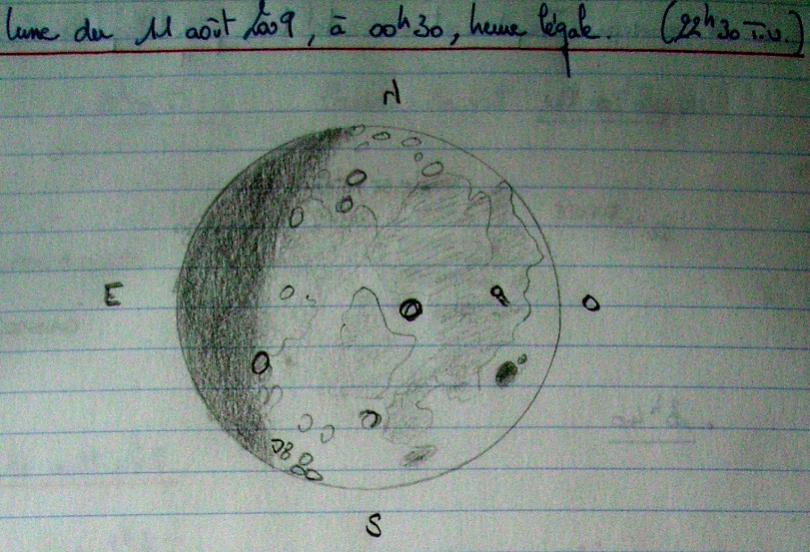 lune du 11 août 2009, à 00h30, heure légale. (22h30 T.U.)
N
E
O
S